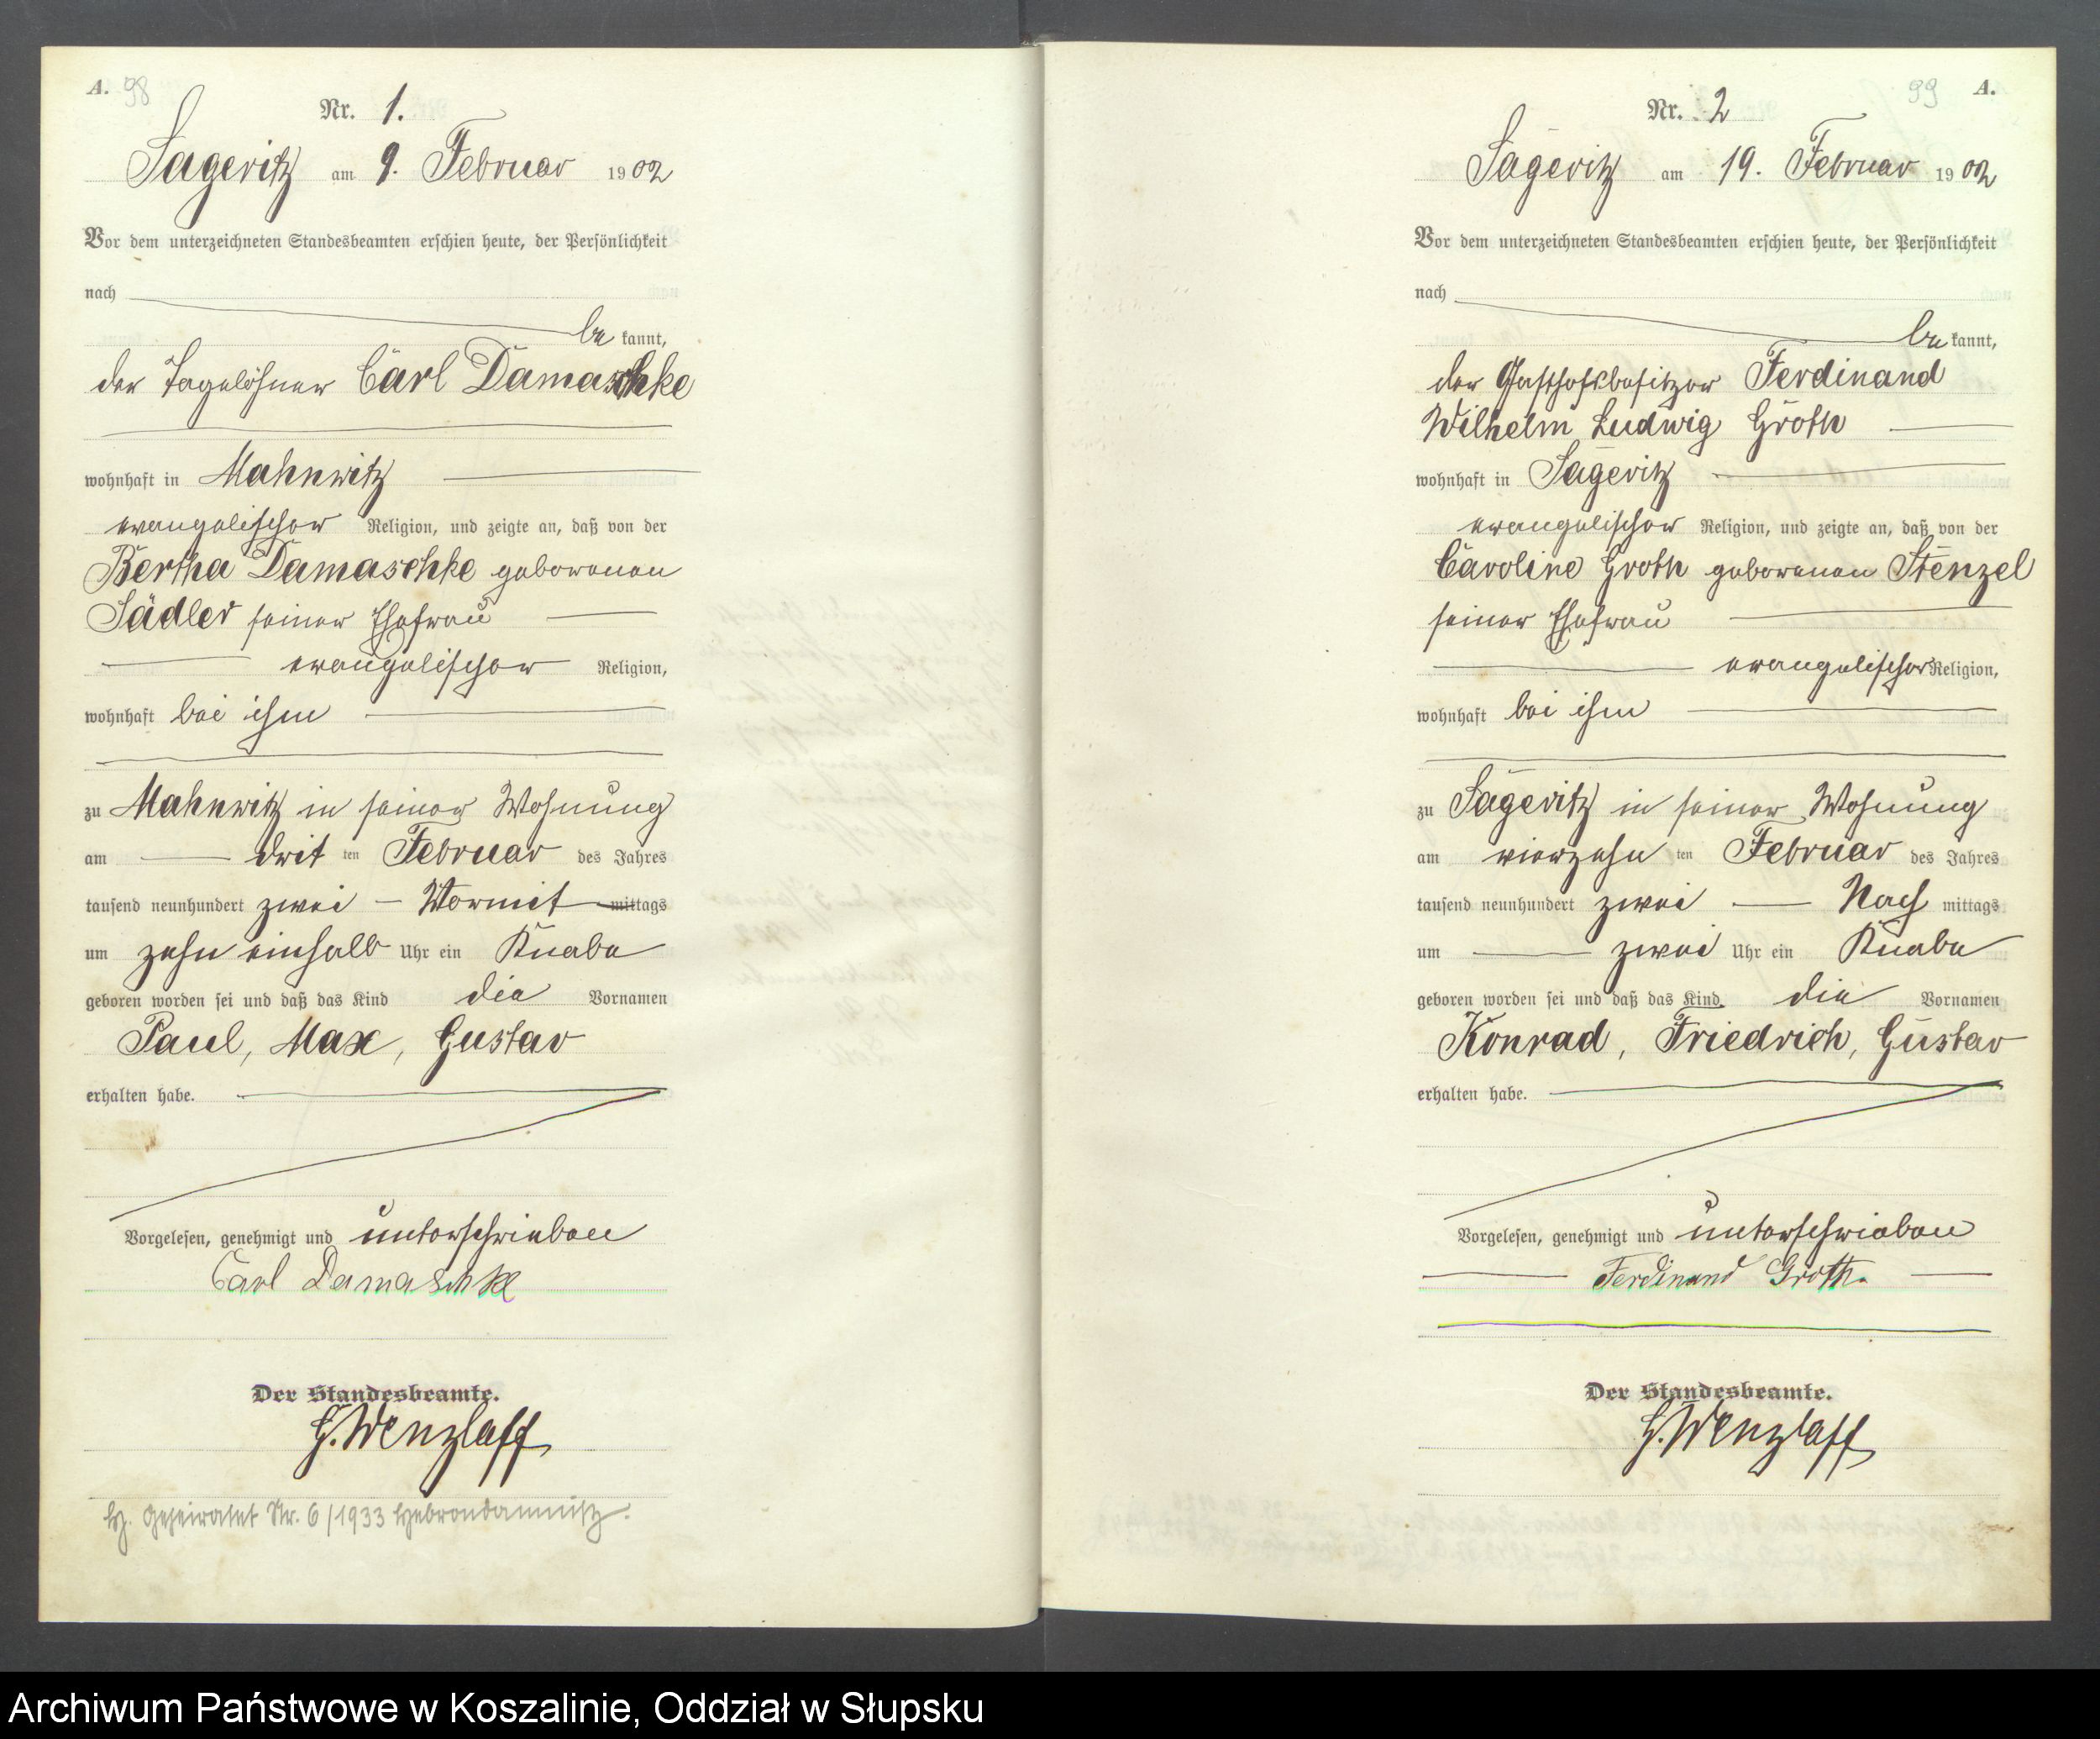 A. 98
Nr. 1.
Sageritz am 9. Februar 1902
Vor dem unterzeichneten Standesbeamten erschien heute, der Persönlichkeit
nach
be kannt,
der Tagelöhner Carl Damaschke
wohnhaft in Mahnwitz
evangelischer Religion, und zeigte an, daß von der
Bertha Damaschke geborenen
Sädler seiner Ehefrau
evangelischer Religion,
wohnhaft bei ihm
zu Mahnwitz in seiner Wohnung
am dritten Februar des Jahres
tausend neunhundert zwei - Vormit mittags
um zehn einhalb Uhr ein Knabe
geboren worden sei und daß das Kind die Vornamen
Paul, Max, Gustav
erhalten habe.
Vorgelesen, genehmigt und unterschrieben
Carl Damaschke
Der Standesbeamte.
G. Wenzlaff
H. Geheiratet Nr. 6/1933 Hebrondamnitz.
99 A.
Nr. 2
Sageritz am 19. Februar 1902
Vor dem unterzeichneten Standesbeamten erschien heute, der Persönlichkeit
nach
be kannt,
der Gasthofsbesitzer Ferdinand
Wilhelm Ludwig Groth
wohnhaft in Sageritz
evangelischer Religion, und zeigte an, daß von der
Caroline Groth geborenen Stenzel
seiner Ehefrau
evangelischer Religion,
wohnhaft bei ihm
zu Sageritz in seiner Wohnung
am vierzehnten Februar des Jahres
tausend neunhundert zwei Nach mittags
um zwei Uhr ein Knabe
geboren worden sei und daß das Kind die Vornamen
Konrad, Friedrich, Gustav
erhalten habe.
Vorgelesen, genehmigt und unterschrieben
Ferdinand Groth.
Der Standesbeamte.
G. Wenzlaff
Archiwum Państwowe w Koszalinie, Oddział w Słupsku